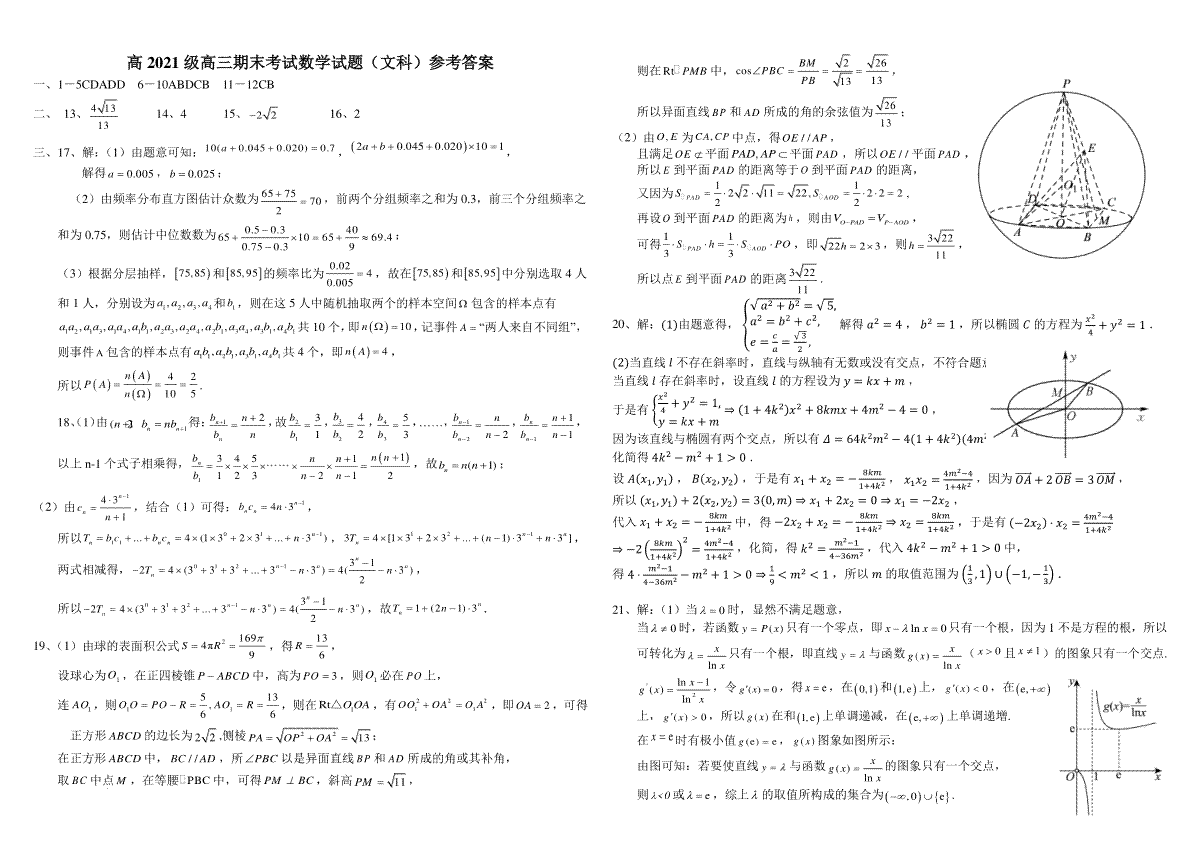 高 2021 级高三期末考试数学试题（文科）参考答案
一、1－5CDADD 6－10ABDCB 11－12CB
二、 13、4√13/13 14、4 15、-2√2 16、2
三、17、解：（1）由题意可知：10(a+0.045+0.020)=0.7，(2a+b+0.045+0.020)×10=1，
解得a=0.005，b=0.025；
（2）由频率分布直方图估计众数为(65+75)/2=70，前两个分组频率之和为 0.3，前三个分组频率之
和为 0.75，则估计中位数数为65+(0.5-0.3)/(0.75-0.3)×10=65+40/9≈69.4；
（3）根据分层抽样，[75,85)和[85,95]的频率比为0.02/0.005=4，故在[75,85)和[85,95]中分别选取 4 人
和 1 人，分别设为a₁,a₂,a₃,a₄和b₁，则在这 5 人中随机抽取两个的样本空间Ω包含的样本点有
a₁a₂,a₁a₃,a₁a₄,a₁b₁,a₂a₃,a₂a₄,a₂b₁,a₃a₄,a₃b₁,a₄b₁共 10 个，即n(Ω)=10，记事件A=“两人来自不同组”，
则事件A包含的样本点有a₁b₁,a₂b₁,a₃b₁,a₄b₁共 4 个，即n(A)=4，
所以P(A)=n(A)/n(Ω)=4/10=2/5．
bₙ=nbₙ₊₁得：bₙ₊₁/bₙ=(n+2)/n，故b₂/b₁=3/1，b₃/b₂=4/2，b₄/b₃=5/3，……，bₙ₋₁/bₙ₋₂=n/(n-2)，bₙ/bₙ₋₁=(n+1)/(n-1)，
以上 n-1 个式子相乘得，bₙ/b₁=3/1×4/2×5/3×⋯⋯×n/(n-2)×(n+1)/(n-1)=n(n+1)/2，故bₙ=n(n+1)；
（2）由cₙ=4·3ⁿ⁻¹/(n+1)，结合（1）可得：bₙcₙ=4n·3ⁿ⁻¹，
所以Tₙ=b₁c₁+...+bₙcₙ=4×(1×3⁰+2×3¹+...+n·3ⁿ⁻¹)，3Tₙ=4×[1×3¹+2×3²+...+(n-1)·3ⁿ⁻¹+n·3ⁿ]，
两式相减得，-2Tₙ=4×(3⁰+3¹+3²+...+3ⁿ⁻¹-n·3ⁿ)=4((3ⁿ-1)/2-n·3ⁿ)，
所以-2Tₙ=4×(3⁰+3¹+3²+...+3ⁿ⁻¹-n·3ⁿ)=4((3ⁿ-1)/2-n·3ⁿ)，故Tₙ=1+(2n-1)·3ⁿ．
19、（1）由球的表面积公式S=4πR²=169π/9，得R=13/6，
设球心为O₁，在正四棱锥P-ABCD中，高为PO=3，则O₁必在PO上，
连AO₁，则O₁O=PO-R=5/6,AO₁=R=13/6，则在Rt△O₁OA，有OO₁²+OA²=O₁A²，即OA=2，可得
正方形ABCD的边长为2√2,侧棱PA=√(OP²+OA²)=√13；
在正方形ABCD中，BC//AD，所∠PBC以是异面直线BP和AD所成的角或其补角，
取BC中点M，在等腰□PBC 中，可得PM⊥BC，斜高PM=√11，
则在Rt□PMB中，cos∠PBC=BM/PB=√2/√13=√26/13，
所以异面直线BP和AD所成的角的余弦值为√26/13；
（2）由O,E为CA,CP中点，得OE//AP，
且满足OE⊄平面PAD,AP⊂平面PAD，所以OE//平面PAD，
所以E到平面PAD的距离等于O到平面PAD的距离，
又因为S□PAD=1/2·2√2·√11=√22,S□AOD=1/2·2·2=2，
再设O到平面PAD的距离为h，则由V_O-PAD=V_P-AOD，
可得1/3·S□PAD·h=1/3·S□AOD·PO，即√22h=2×3，则h=3√22/11，
所以点E到平面PAD的距离3√22/11．
P
E
O₁
D
C
O
M
A
B
20、解：(1)由题意得，{√(a²+b²)=√5, a²=b²+c², e=c/a=√3/2, 解得a²=4，b²=1，所以椭圆C的方程为x²/4+y²=1．
(2)当直线l不存在斜率时，直线与纵轴有无数或没有交点，不符合题
当直线l存在斜率时，设直线l的方程设为y=kx+m，
于是有{x²/4+y²=1, y=kx+m ⇒(1+4k²)x²+8kmx+4m²-4=0，
因为该直线与椭圆有两个交点，所以有Δ=64k²m²-4(1+4k²)(4m²
化简得4k²-m²+1>0．
设A(x₁,y₁)，B(x₂,y₂)，于是有x₁+x₂=-8km/(1+4k²)，x₁x₂=(4m²-4)/(1+4k²)，因为OA→+2OB→=3OM→，
所以(x₁,y₁)+2(x₂,y₂)=3(0,m)⇒x₁+2x₂=0⇒x₁=-2x₂，
代入x₁+x₂=-8km/(1+4k²)中，得-2x₂+x₂=-8km/(1+4k²)⇒x₂=8km/(1+4k²)，于是有(-2x₂)·x₂=(4m²-4)/(1+4k²)
⇒-2(8km/(1+4k²))²=(4m²-4)/(1+4k²)，化简，得k²=(m²-1)/(4-36m²)，代入4k²-m²+1>0中，
得4·(m²-1)/(4-36m²)-m²+1>0⇒1/9<m²<1，所以m的取值范围为(1/3,1)∪(-1,-1/3)．
y
M
B
O
x
A
21、解：（1）当λ=0时，显然不满足题意，
当λ≠0时，若函数y=P(x)只有一个零点，即x-λln x=0只有一个根，因为 1 不是方程的根，所以
可转化为λ=x/ln x只有一个根，即直线y=λ与函数g(x)=x/ln x（x>0且x≠1）的图象只有一个交点.
g'(x)=(ln x-1)/ln²x，令g'(x)=0，得x=e，在(0,1)和(1,e)上，g'(x)<0，在(e,+∞)
上，g'(x)>0，所以g(x)在和(1,e)上单调递减，在(e,+∞)上单调递增.
在x=e时有极小值g(e)=e，g(x)图象如图所示：
由图可知：若要使直线y=λ与函数g(x)=x/ln x的图象只有一个交点，
则λ<0或λ=e，综上λ的取值所构成的集合为(-∞,0)∪{e}．
y
g(x)=x/lnx
e
O
1
e
x